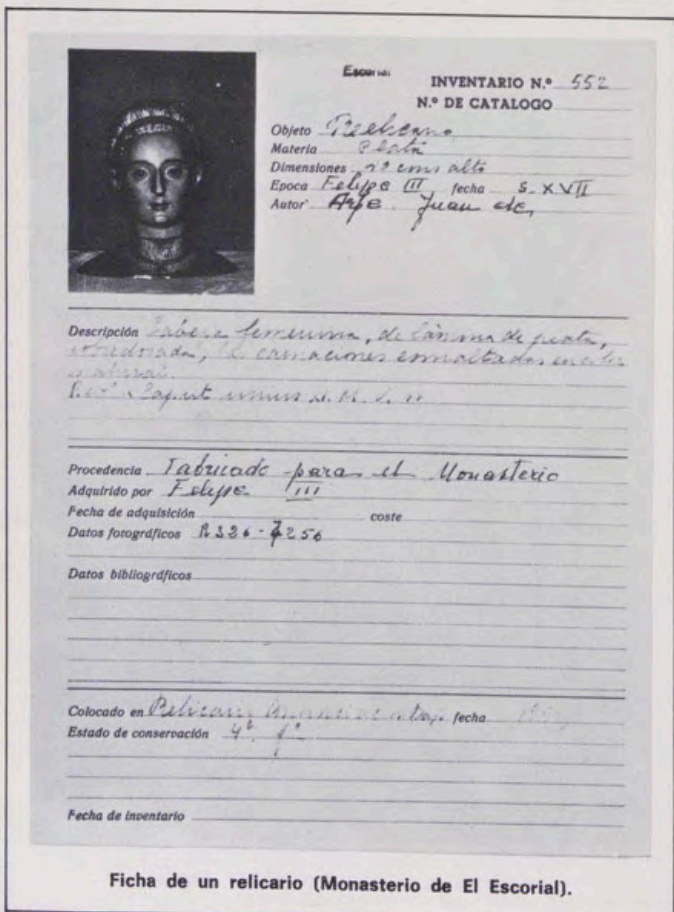 Escorial
INVENTARIO N.º 552
N.º DE CATALOGO
Objeto Relicario
Materia Plata
Dimensiones cms alto
Epoca Felipe III fecha S. XVII
Autor Arfe Juan de
Descripción Cabeza femenina, de lámina de plata,
sobredorada, las carnaciones esmaltadas en color
natural.
Procedencia Fabricado para el Monasterio
Adquirido por Felipe III
Fecha de adquisición coste
Datos fotográficos
Datos bibliográficos
Colocado en Relicario fecha
Estado de conservación
Fecha de inventario
Ficha de un relicario (Monasterio de El Escorial).